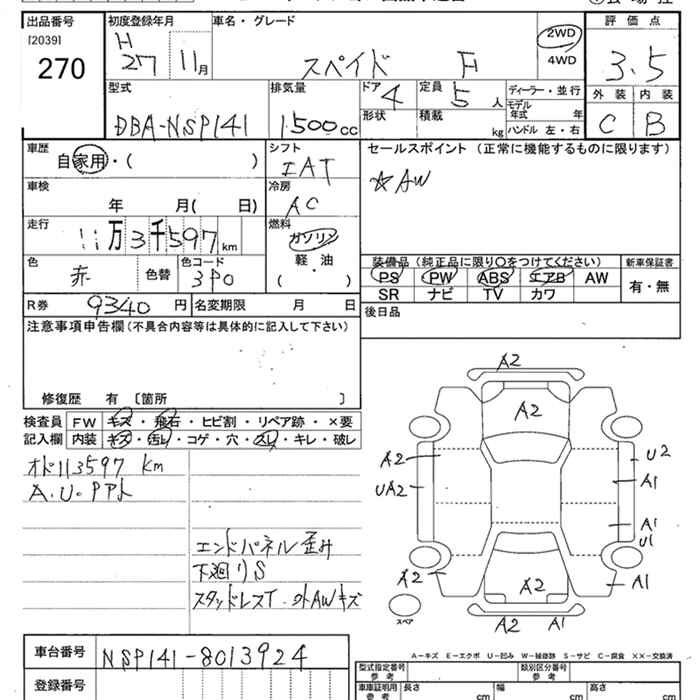 出品番号 初度登録年月 車名・グレード 評価点
[2039]
270
H
27 11月 スペイド F 2WD 3.5
4WD
型式 排気量 ドア 定員 ディーラー・並行 外装 内装
DBA-NSP141 1500cc 4 5人 モデル年式 年
形状 積載 kg ハンドル 左・右 C B
車歴 シフト セールスポイント (正常に機能するものに限ります)
自家用・( ) IAT ☆AW
車検 冷房
年 月( 日) AC
走行 燃料
11万3千597km ガソリン
色 色替 色コード 軽・油
赤 3P0 ( )
装備品(純正品に限り○をつけてください) 新車保証書
PS PW ABS エアB AW 有・無
SR ナビ TV カワ
R券 9340円 名変期限 月 日 後日品
注意事項申告欄(不具合内容等は具体的に記入して下さい)
修復歴 有 〔箇所 〕
検査員 FW キズ・飛石・ヒビ割・リペア跡・×要
記入欄 内装 キズ・汚レ・コゲ・穴・スレ・キレ・破レ
オド113597 km
A.U.PPAト
エンドパネル歪み
下廻りS
スタッドレスT.外AWキズ
A2
A2
A2 U2
UA2 A1
A1
U1
A2 A2 A1
スペア
A2 A1
A-キズ E-エクボ U-凹み W-補修跡 S-サビ C-腐食 XX-交換済
車台番号 NSP141-8013924
登録番号
型式指定番号 参考 類別区分番号 参考
車庫証明用 参考 長さ cm 幅 cm 高さ cm